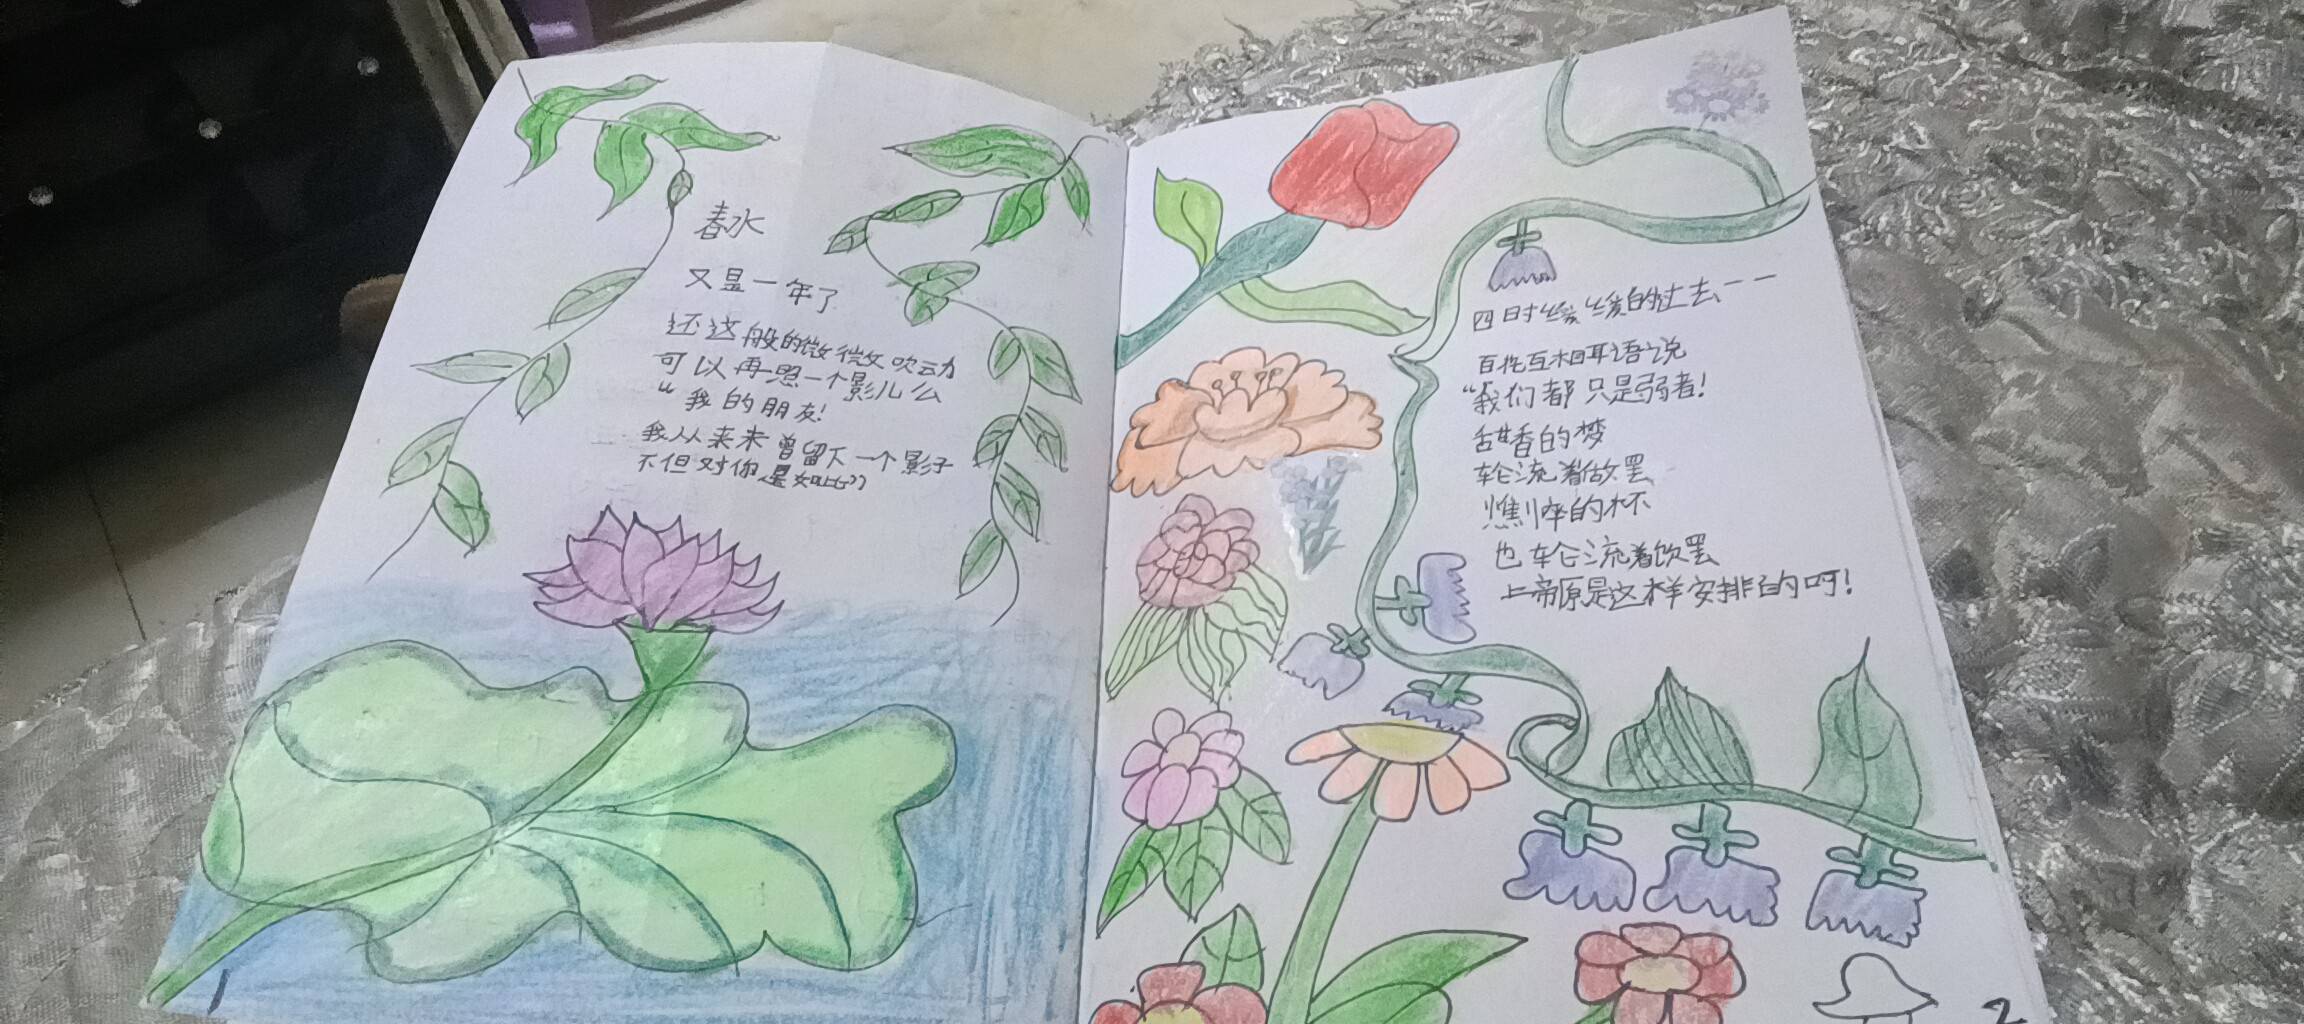 春水
又是一年了
还这般的微微吹动
可以再思一个影儿么
“我的朋友!
我从来未曾留下一个影子
不但对你是如此”
1
四时缓缓的过去——
百花互相耳语说
“我们都只是弱者!
甜香的梦
轮流着做罢
憔悴的杯
也轮流着饮罢
上帝原是这样安排的呵!
2